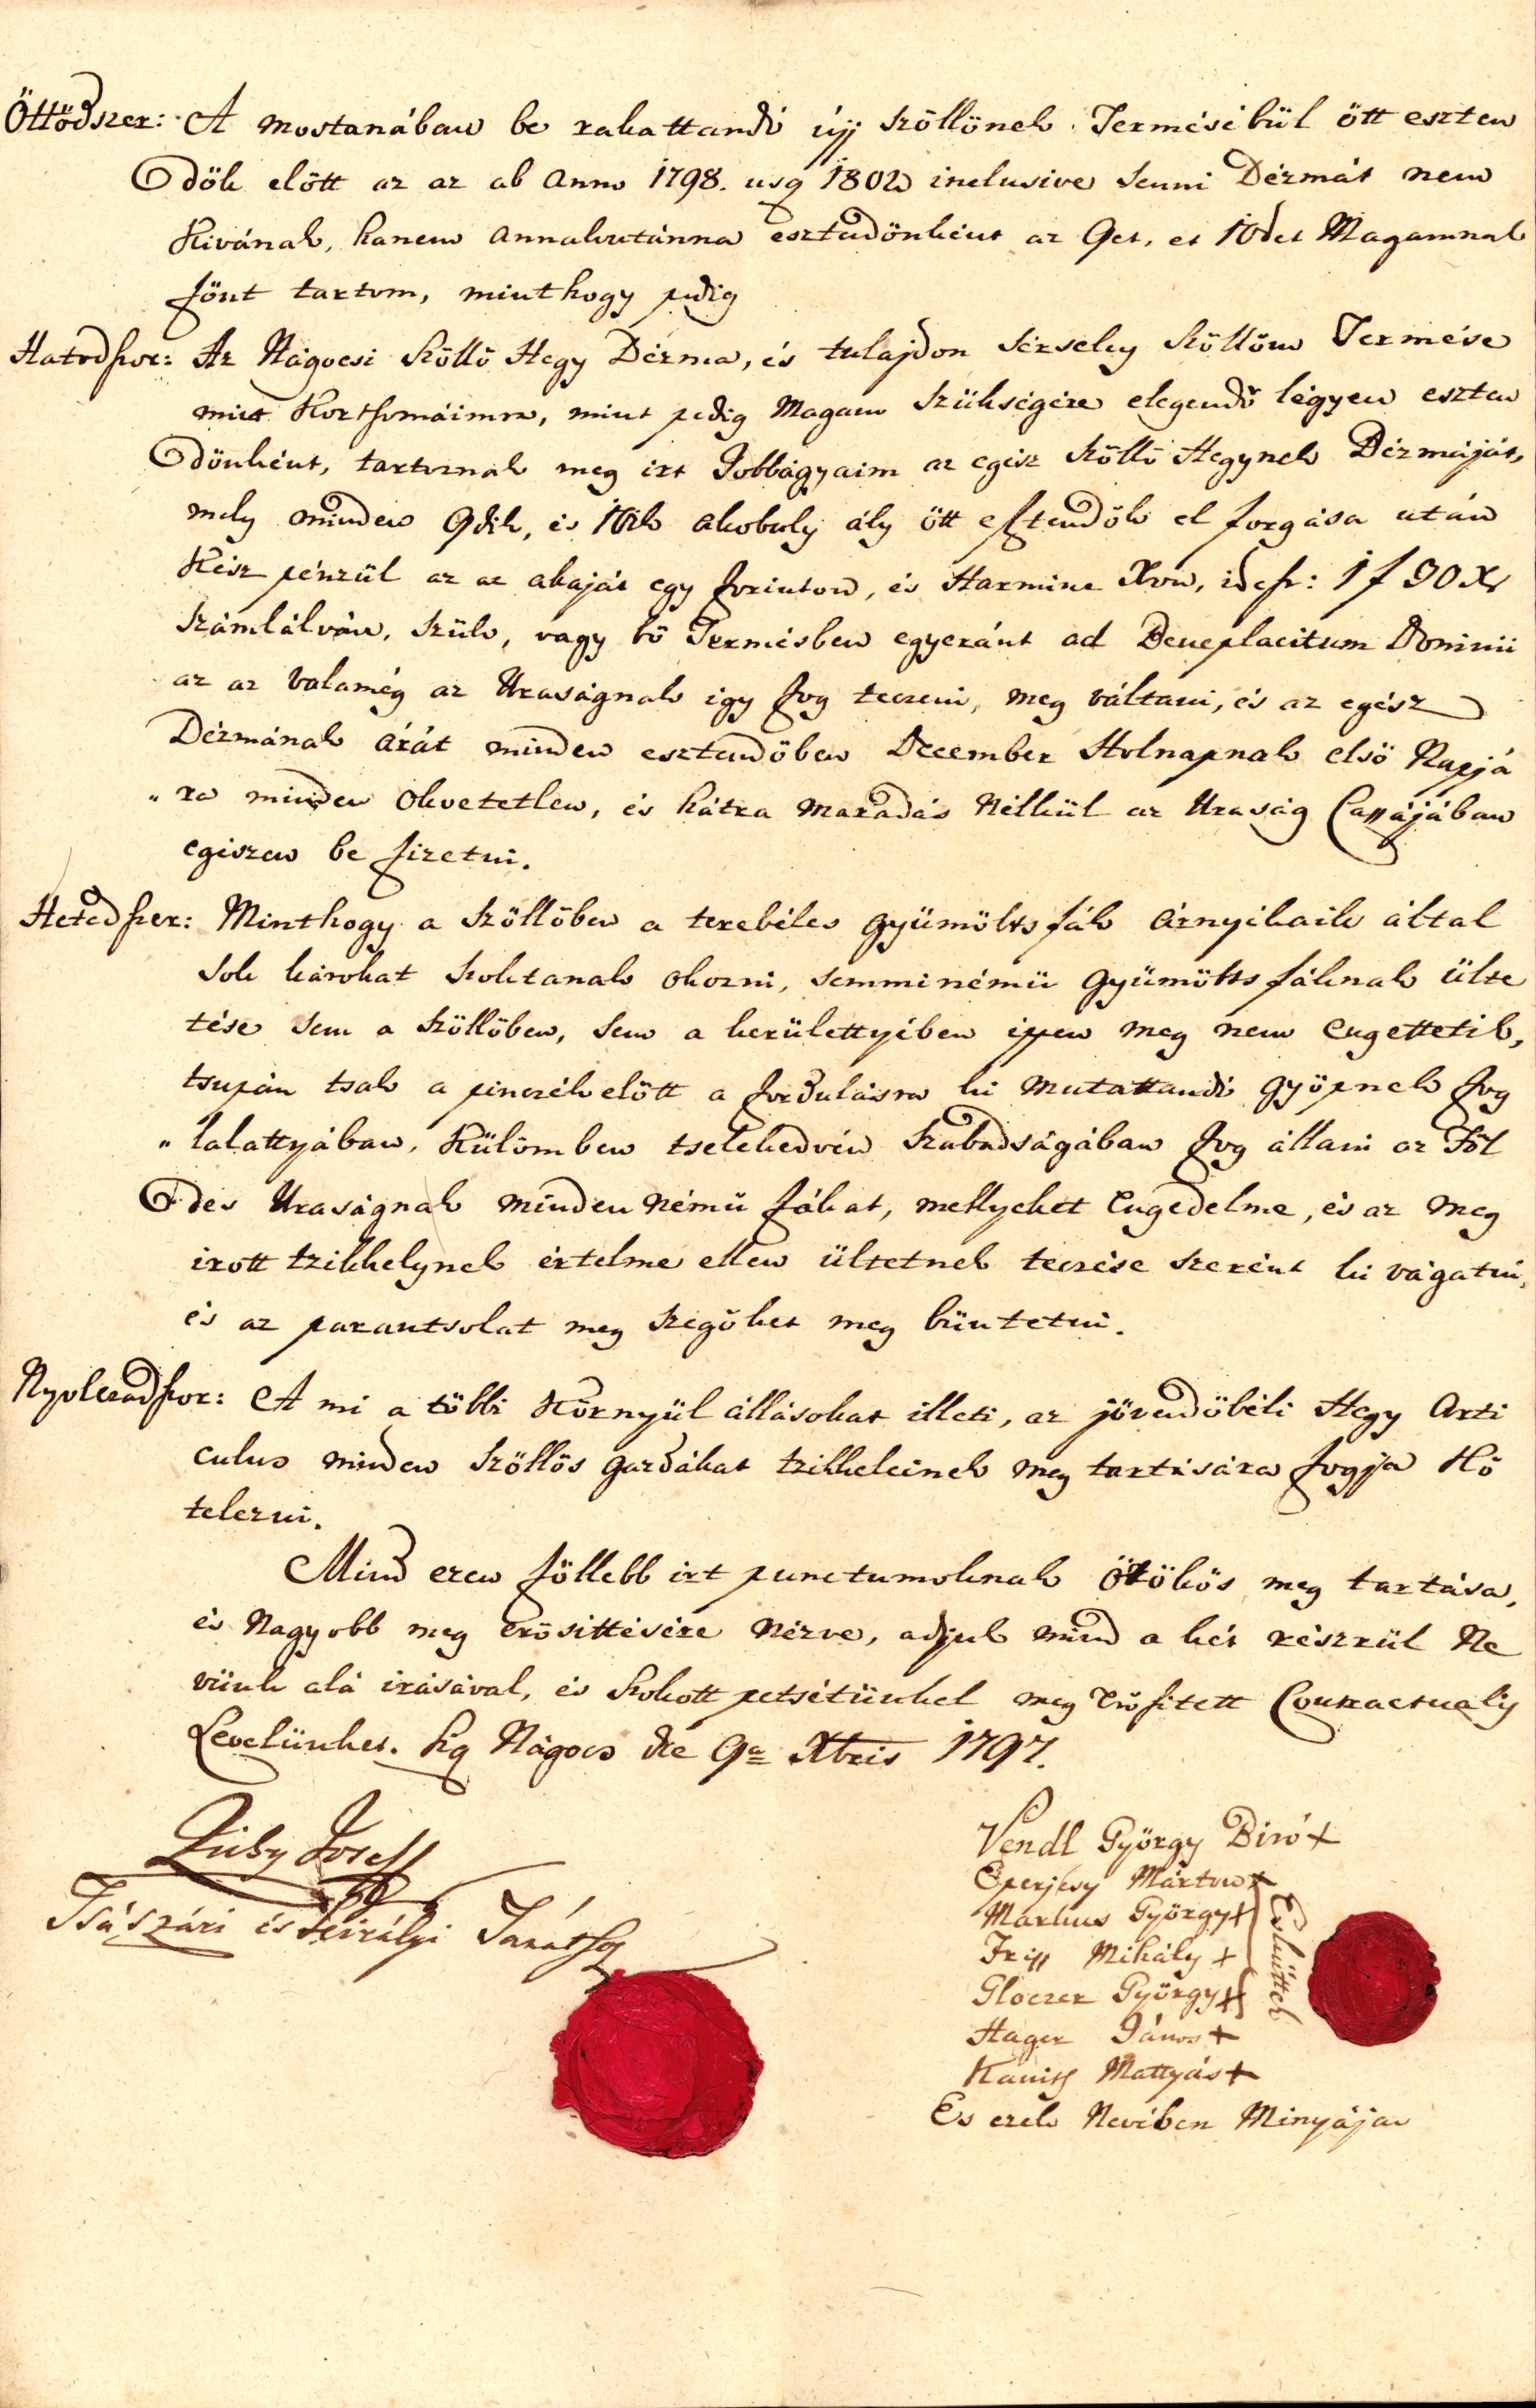 Öttödszer: A mostanában be rakattandó új szöllönek Terméséböl ött eszten
dök elött az az ab Anno 1798. usq 1802 inclusive semi Dézmát nem
kivánok, hanem annakutánna esztendönként az 9et, es 10det Magamnak
fönt tartom, mint hogy pedig
Hatodszor: Az Nágocsi szöllö Hegy Dézma, és tulajdon Sérsely szöllöm Termése
mint Kortsomáimra, mint pedig Magam szükségére elegendö légyen eszten
dönként, tartoznak meg irt Jobbágyaim az egész szöllö Hegynek Dézmáját,
mely minden 9dik, és 10ik akobuly ály ött esztendök el forgása után
Kész pénzül az az akaját egy forinton, és Harmincz Xron, id est: 1 f 30 Xr
számlálván, szük, vagy bö Termésben egyeránt ad Beneplacitum Dominii
az az valamég az Uraságnak igy fog teczeni, meg váltani, és az egész
Dézmának árát minden esztendöben December Holnapnak elsö Napjá
ra minden okvetetlen, és hátra maradás nélkül az Uraság Cassájában
egiszen be fizetni.
Hetedszer: Minthogy a szöllöben a terebéles gyümölts fák árnyékaik által
sok károkat szoktanak okozni, semminémü gyümölts fáknak ülte
tése sem a szöllöben, sem a kerülettyében ippen meg nem engettetik,
tsupán tsak a pinczék elött a fordulásra ki mutattandó gyöpnek fog
lalattyában, Külömben tselekedvén szabadságában fog állani az Föl
des Uraságnak minden némü fákat, mellyeket engedelme, és az meg
irott tzikkelynek értelme ellen ültetnek teczése szerént ki vágatni,
és az parantsolat meg szegöket meg büntetni.
Nyolczadszor: A mi a többi Környül állásokat illeti, az jövendöbéli Hegy Arti
culus minden szöllös gazdákat tzikkeleinek meg tartására fogja Kö
telezni.
Mind ezen föllebb irt punctumoknak örökös meg tartása,
és Nagyobb meg erösittésére nézve, adjuk mind a két részrül Ne
vünk alá irásával, és szokott petsétünkel meg erösitett Contractualis
Levelünket. Sig Nágocs die 9a Xbris 1797.
Zichy Josef
Tsászári és Királyi Tanátsos
Vendl György Biró +
Eperjesy Márton +
Markus György +
Friss Mihály +
Gloczer György +
Hager János +
Kanits Mattyás +
Esküttek
És ezek Nevében Minyájan